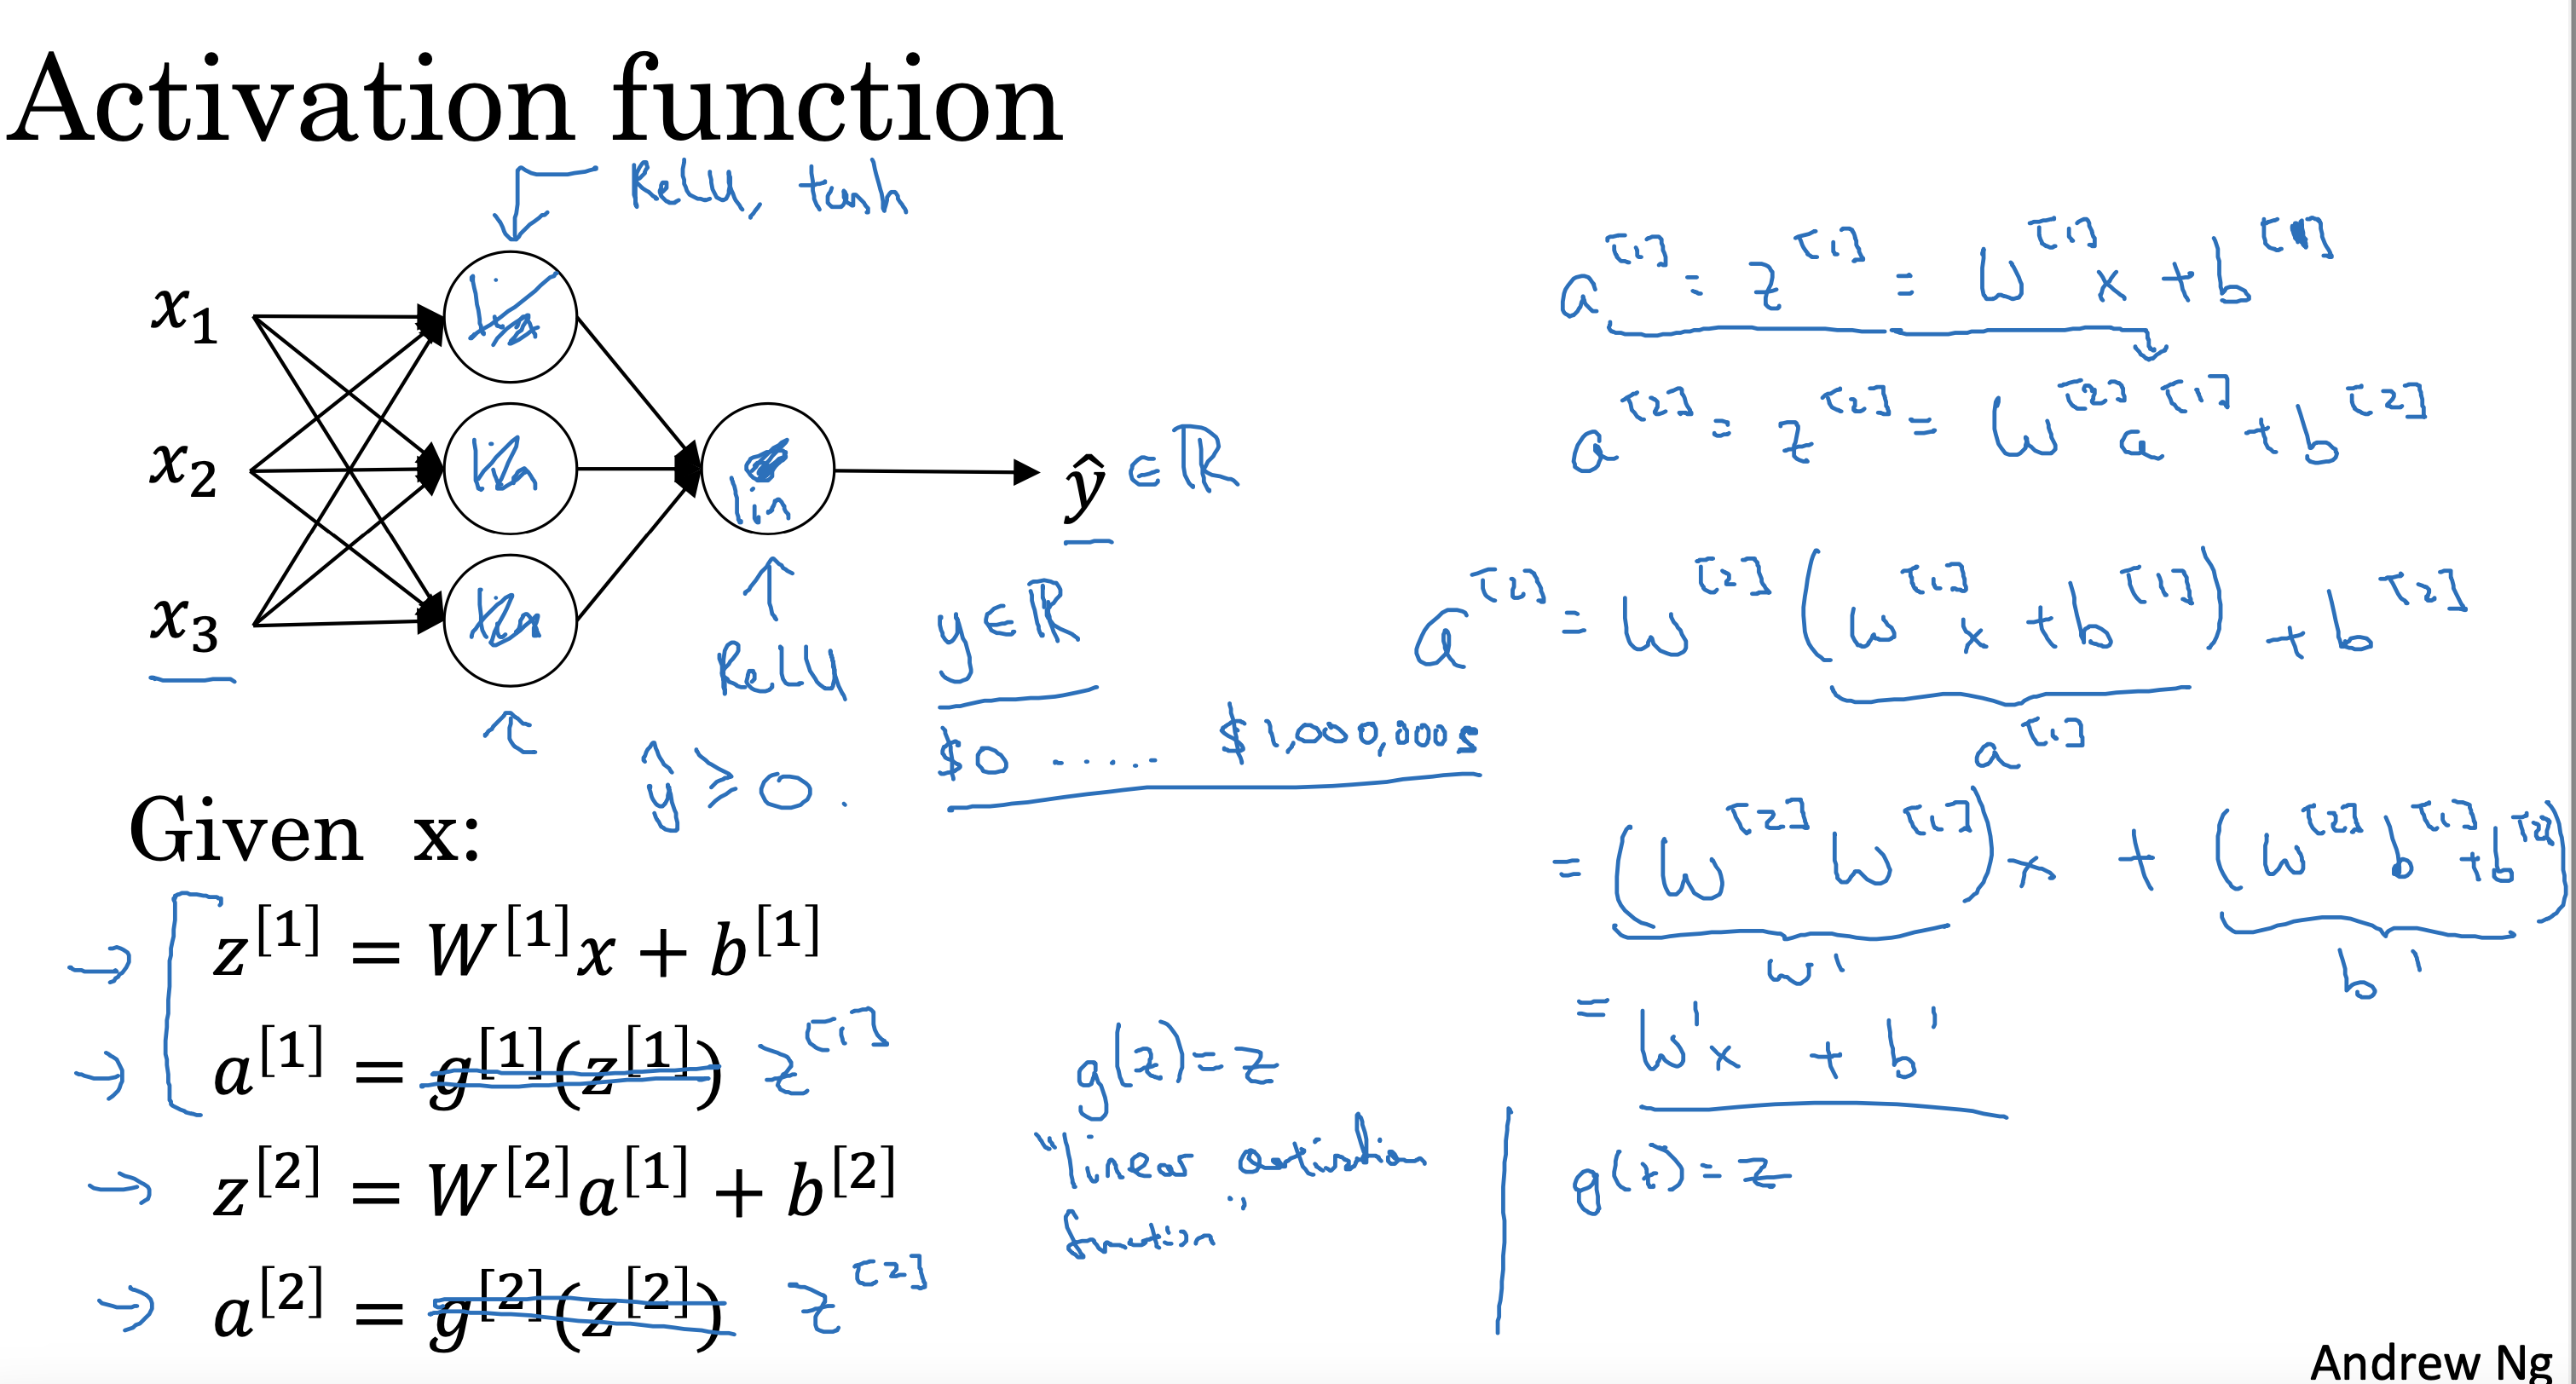 Activation function
ReLU, tanh
x₁
x₂
x₃
lin
lin
lin
lin
ŷ ∈ ℝ
ReLU
y ∈ ℝ
ŷ ≥ 0.
$0 ..... $1,000,000s
Given x:
→ z^[1] = W^[1]x + b^[1]
→ a^[1] = g^[1](z^[1]) z^[1]
→ z^[2] = W^[2]a^[1] + b^[2]
→ a^[2] = g^[2](z^[2]) z^[2]
g(z) = z
"linear activation
function"
a^[1] = z^[1] = W^[1]x + b^[1]
a^[2] = z^[2] = W^[2]a^[1] + b^[2]
a^[2] = W^[2](W^[1]x + b^[1]) + b^[2]
a^[1]
= (W^[2]W^[1])x + (W^[2]b^[1] + b^[2])
W' b'
= W'x + b'
g(z) = z
Andrew Ng